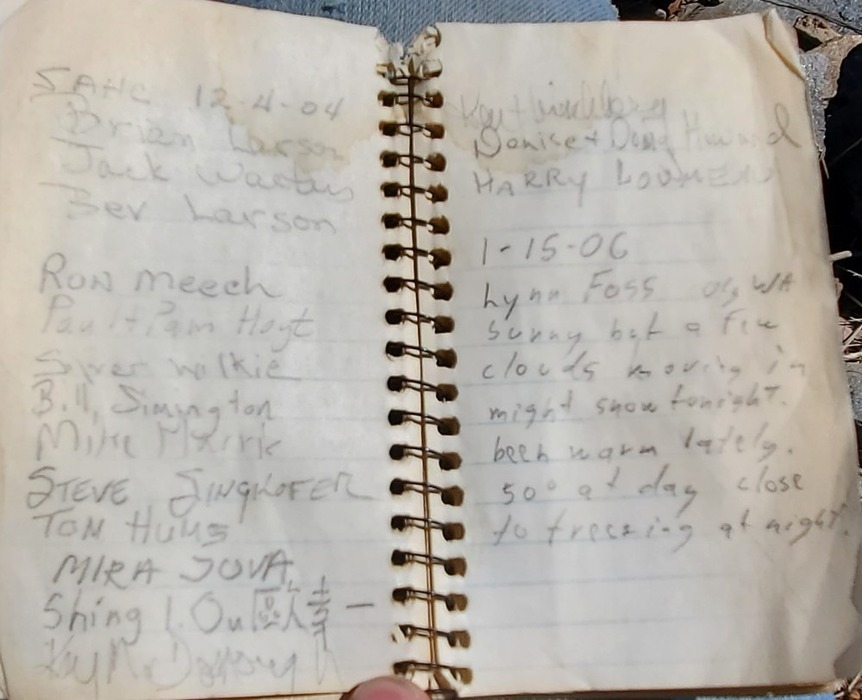 SAHC 12-4-04
Brian Larson
Jack
Bev Larson
Ron Meech
Paul + Pam Hoyt
Wilkie
Bill Simington
Mike
STEVE SINGKOFER
TOM HUMS
MIRA JOVA
Shing I. Ou
Denise + Doug Howard
HARRY
1-15-06
Lynn Foss WA
sunny but a few
clouds moving in
might snow tonight.
been warm lately.
50° at day close
to freezing at night.